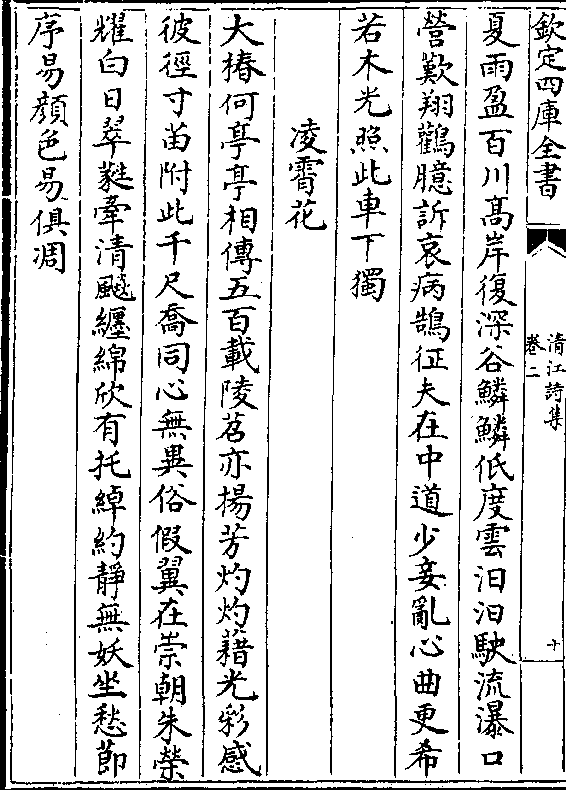 欽定四庫全書
清江詩集
卷二
十
夏雨盈百川高岸復深谷鱗鱗低度雲汩汩駛流瀑口
營歎翔鸛臆訴哀病鵠征夫在中道少妾亂心曲更希
若木光照此車下獨
凌霄花
大椿何亭亭相傳五百載陵苕亦揚芳灼灼藉光彩感
彼徑寸苗附此千尺喬同心無異俗假翼在崇朝朱榮
耀白日翠蕤牽清飈纏綿欣有托綽約靜無妖坐愁節
序易顔色易俱凋